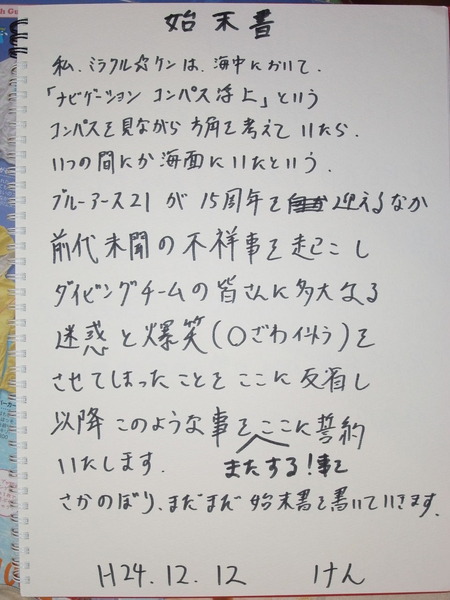 始末書
私、ミラクル☆ケンは、海中において、
「ナビゲーション コンパス浮上」という
コンパスを見ながら方角を考えていたら、
いつの間にか海面にいたという、
ブルーアース21が15周年を迎えるなか
前代未聞の不祥事を起こし
ダイビングチームの皆さんに多大なる
迷惑と爆笑(〇ざわイントラ)を
させてしまったことをここに反省し
以降このような事をここに誓約
いたします。 またする!事を
さかのぼり、まだまだ始末書を書いていきます。
H24.12.12 けん